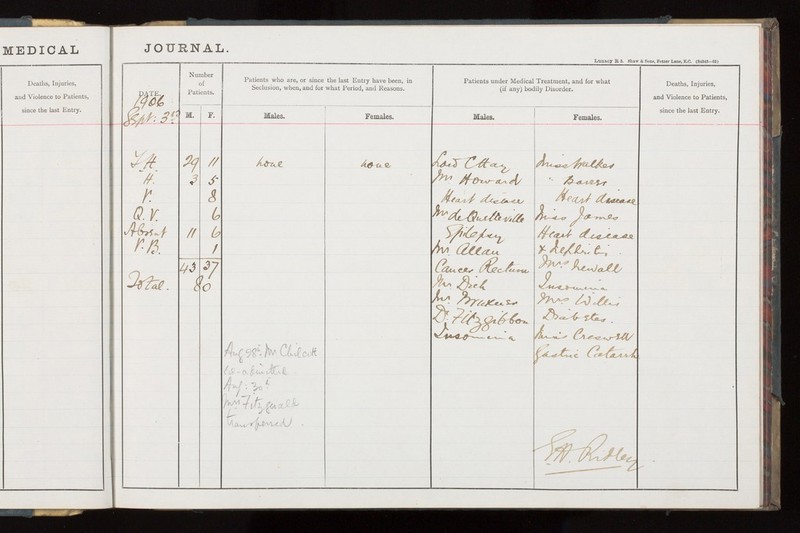 MEDICAL
JOURNAL.
Deaths, Injuries,
and Violence to Patients,
since the last Entry.
DATE.
Number
of
Patients.
M. F.
Patients who are, or since the last Entry have been, in
Seclusion, when, and for what Period, and Reasons.
Males. Females.
Patients under Medical Treatment, and for what
(if any) bodily Disorder.
Males. Females.
Deaths, Injuries,
and Violence to Patients,
since the last Entry.
1906
Sept: 3rd
29 11 none none Lord C Hay Miss Walker
H. 3 5 Mr Howard "
V. 8 Heart disease Heart disease
Q.V. 6 Mr de Quetteville Miss James
Absent 11 6 Epilepsy Heart disease
V.B. 1 Mr. Allan & Nephritis.
43 37 Cancer Rectum Mrs Newall
Total. 80 Mr Dick Insomnia
Mr. Mrs Willis
Dr. Fitzgibbon Diabetes.
Insomnia Miss Creswell
Gastric Catarrh
Aug 28th Mr Chilcott
re-admitted
Aug: 30th
Mrs Fitzgerald
transferred.
Ridley